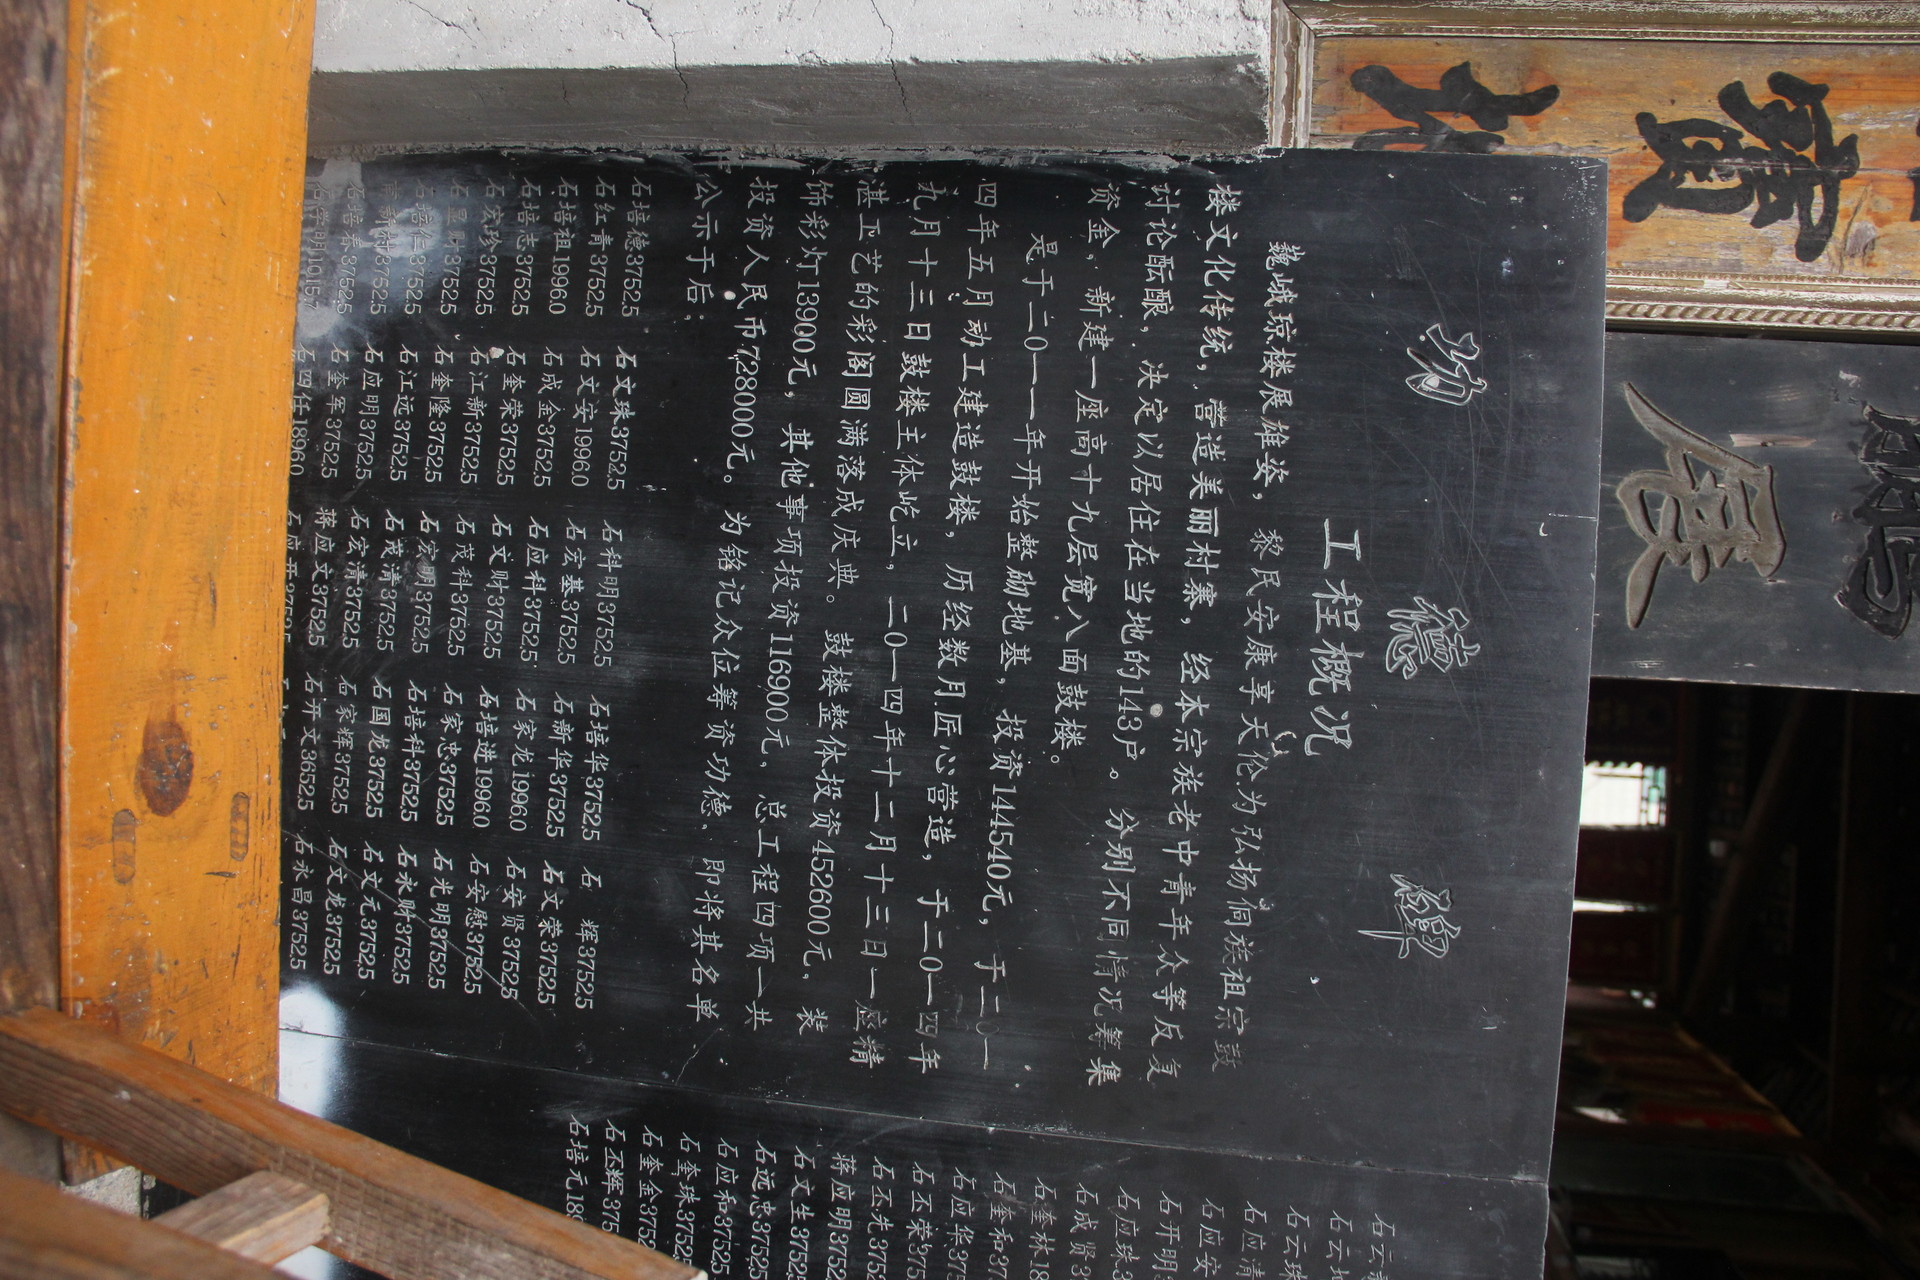 功德碑
工程概况
巍峨琼楼展雄姿，黎民安康享天伦为弘扬侗族祖宗鼓
楼文化传统，营造美丽村寨，经本宗族老中青年众等反复
讨论酝酿，决定以居住在当地的143户。分别不同情况筹集
资金，新建一座高十九层宽八面鼓楼。
是于二0一一年开始整励地基，投资144540元，于二0一
四年五月动工建造鼓楼，历经数月匠心营造，于二0一四年
九月十三日鼓楼主体屹立。二0一四年十二月十三日一座精
湛工艺的彩阁圆满落成庆典。鼓楼整体投资452600元，装
饰彩灯13900元，其他事项投资116900元，总工程四项一共
投资人民币728000元。为铭记众位筹资功德，即将其名单
公示于后：
石培德3752.5 石文珠3752.5 石科明3752.5 石培华3752.5 石辉3752.5
石红青3752.5 石文安1996.0 石宏基3752.5 石新华3752.5 石文荣3752.5
石培祖1996.0 石成金3752.5 石应科3752.5 石家龙1996.0 石安贤3752.5
石培志3752.5 石奎荣3752.5 石文财3752.5 石培进1996.0 石安慰3752.5
石宏珍3752.5 石江新3752.5 石茂科3752.5 石家忠3752.5 石光明3752.5
石量财3752.5 石奎隆3752.5 石家明3752.5 石培科3752.5 石永财3752.5
石培仁3752.5 石江远3752.5 石茂清3752.5 石国龙3752.5 石文元3752.5
3752.5 石应明3752.5 石宏清3752.5 石家辉3752.5 石文龙3752.5
石培春3752.5 石奎军3752.5 蒋应文3752.5 石开文3652.5 石永昌3752.5
石学明1015.7 石四任1896.0 石应开3752.5
石云
石云
石云珠
石应清
石应安
石开明3
石应珠3
石成贤3
石奎林18
石奎和37
石应华375
石丕荣375
石丕先3752
蒋应明3752
石文生3752.5
石远忠3752.5
石应和3752.5
石奎珠3752.5
石奎金3752
石丕辉375
石培元18